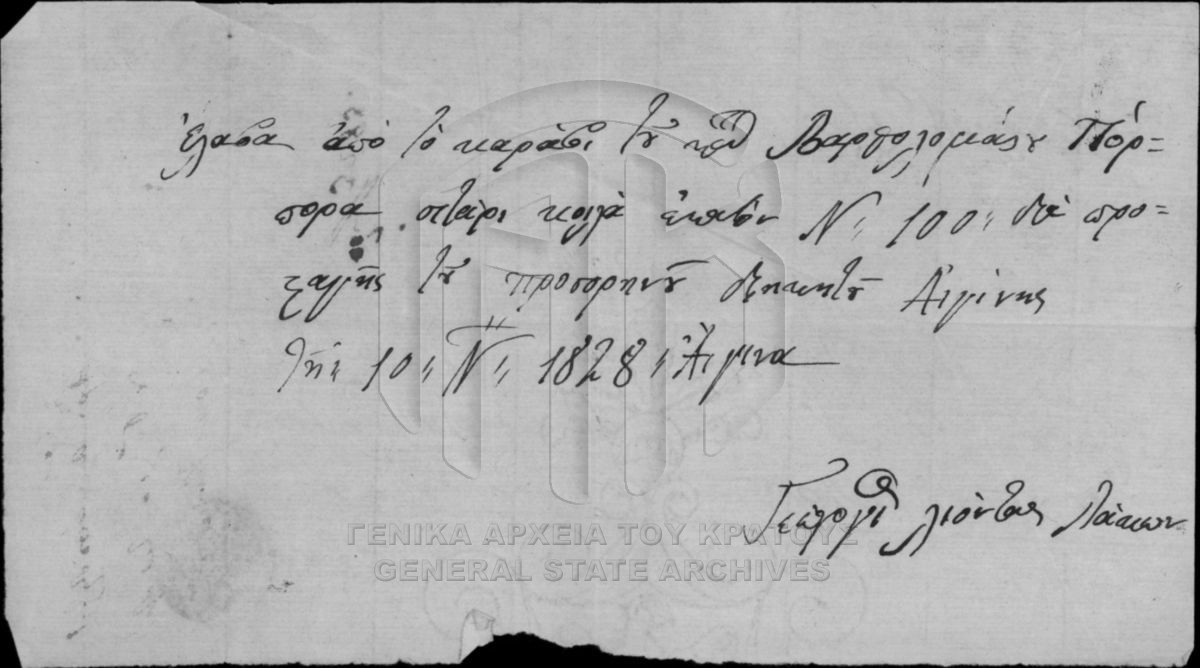 ἔλαβα ἀπὸ τὸ καράβι τοῦ καπ Βαρθολομαίου Πόρ-
πορα σιτάρι κοιλὰ ἑκατὸν Ν: 100: διὰ προ-
σταγῆς τοῦ προσορινοῦ διηκητοῦ Αἰγίνης
τῆ: 10: Ν: 1828: Αἴγινα
Γεώργι λιόντας Λάκων
ΓΕΝΙΚΑ ΑΡΧΕΙΑ ΤΟΥ ΚΡΑΤΟΥΣ
GENERAL STATE ARCHIVES